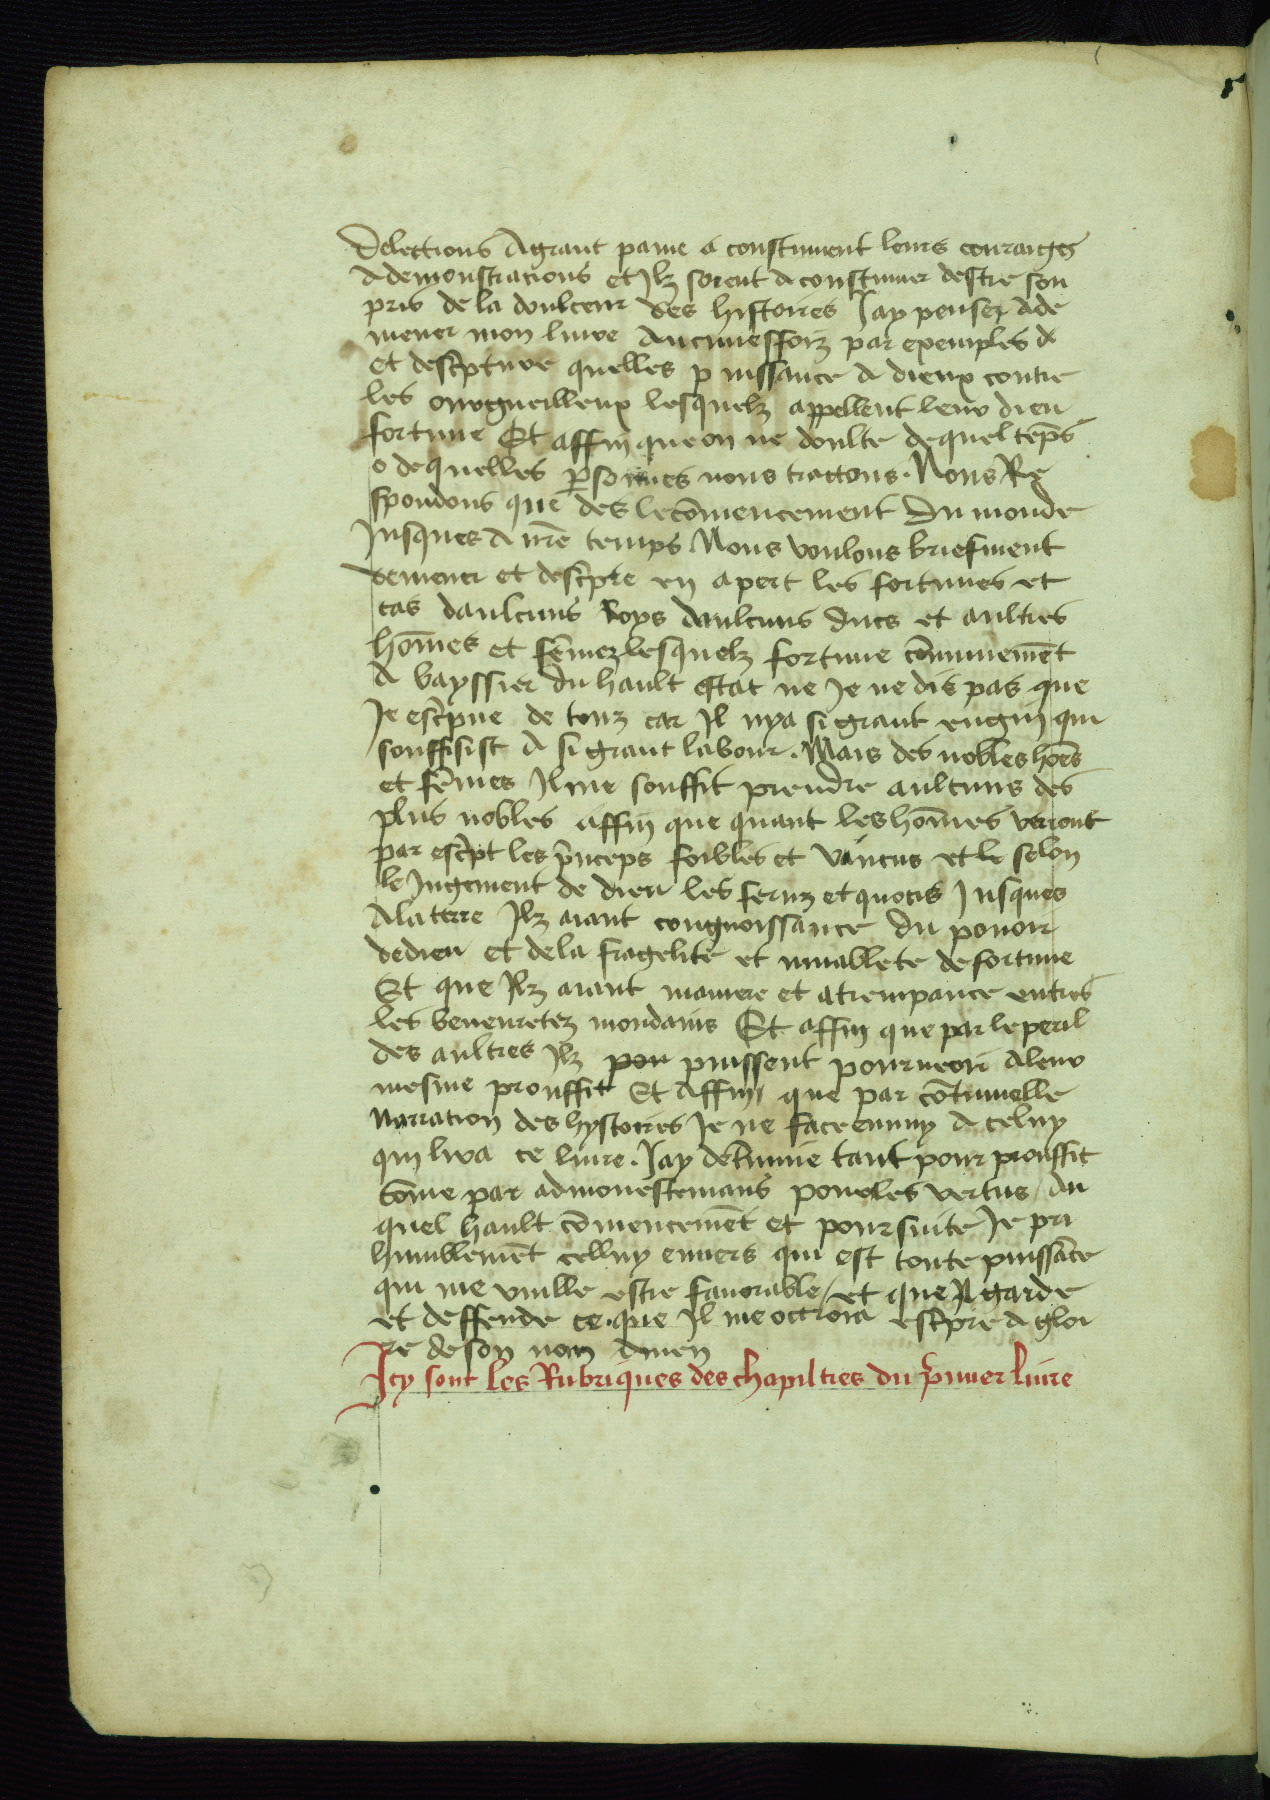 Delections A grant paine a constiuuent leurs couraiges
A demonstracions et Ilz soient Aconstiuuer destre sou
pris de la doulceur des histoires Jay pensez Ade
mener mon liure Aucunesfoiz par exemples &
et descpture quelles puissance A dieux contre
les orogueilleux lesquelz appellent leur dieu
fortune Et affin que on ne doulte de quel tēps
o de quelles ꝑsonnes nous trattons. Nous Re
spondons que des le cōmencement du monde
Jusques A nrē temps Nous voulons briefment
demener et descpre en apert les fortunes et
cas daulcuns Roys daulcuns ducs et aultres
hōmes et fēmez lesquelz fortune cōmunemēt
A bayssier du hault estat ne Je ne dis pas que
Je escpue de touz car Il nya si grant engin qui
souffisist A si grant labour. Mais des nobles hōēs
et fēmes Il me souffit prendre aultuns des
plus nobles affin que quant les hōmes verront
par escpt les p̄nceps foibles et vaincus et le selon
le Jugement de dieu les feruz et quocis Jusques
A la terre Ilz aiant congnoissance du pouoir
de dieu et de la fragelite et muablete de fortune
Et que Ilz aiant maniere et atrempance entres
les beneuretez mondanis Et affin que par le peril
des aultres Ilz pou puissent pourueoir A leur
mesme prouffit Et Affin que par cōtinuelle
narration des hystoires Je ne face ennuy A celuy
qui lira ce liure. Jay determine tant pour prouffit
cōme par admonestemans pour les vertus / du
quel hault cōmencemēt et poursuite Je pri
humblemēt celluy enuers qui est toute puissāce
qui me vuille estre fauorable / et que Il garde
et deffende ce que Il me octroia escpre A gloi
re de son nom Amen
Icy sont les Rubriques des chapiltres du p̄mier liure